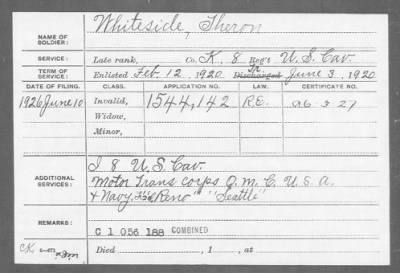 NAME OF SOLDIER: Whiteside, Theron
SERVICE: Late rank, Co. K, 8 Reg't U.S. Cav.
TERM OF SERVICE: Enlisted Feb. 12, 1920, Discharged June 3, 1920
DATE OF FILING. CLASS. APPLICATION NO. LAW. CERTIFICATE NO.
1926 June 10 Invalid, 1544,142 R.E.
Widow,
Minor,
ADDITIONAL SERVICES: I 8 U.S. Cav.
Motor Trans Corps Q.M.C. U.S.A.
+ Navy "Reno" "Seattle"
REMARKS: C 1 056 188 COMBINED
Died , 1 , at